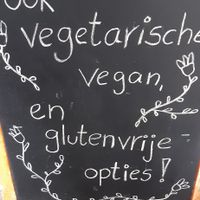 OOK
vegetarische
vegan,
en
glutenvrije -
opties!